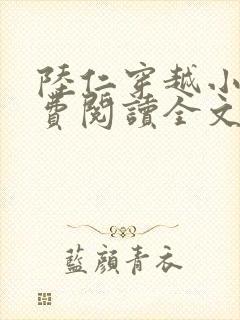 陸仁穿越小
費閱讀全文
藍顏青衣